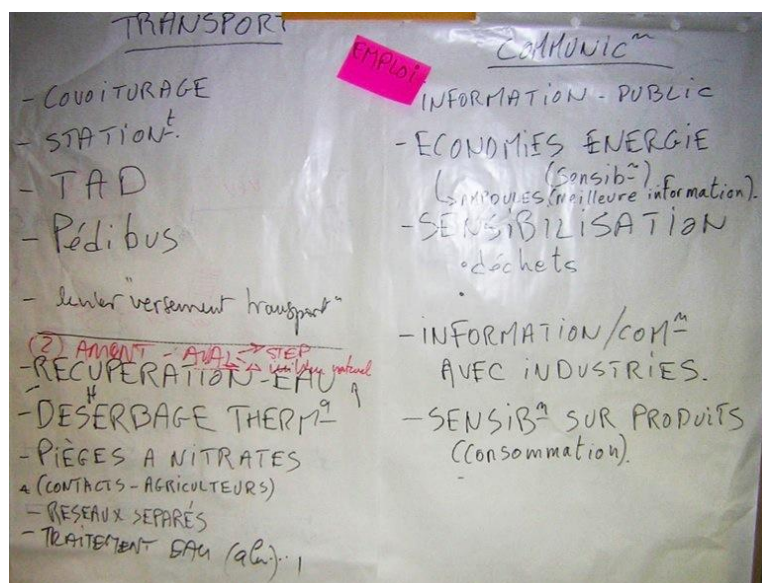 TRANSPORT
- COVOITURAGE
- STATIONt.
- TAD
- Pédibus
- levier "versement transport"
(2) AMONT - AVAL → STEP
→ milieu naturel
- RECUPERATION - EAU
- DESHERBAGE THERMq
- PIÈGES A NITRATES
(CONTACTS - AGRICULTEURS)
- RESEAUX SEPARÉS
- TRAITEMENT EAU
EMPLOI
COMMUNICn
INFORMATION - PUBLIC
- ECONOMIES ENERGIE
(Sensibn)
↳ AMPOULES (meilleure information).
- SENSIBILISATION
• déchets
•
- INFORMATION/COMn
AVEC INDUSTRIES.
- SENSIBn SUR PRODUITS
(consommation).
-